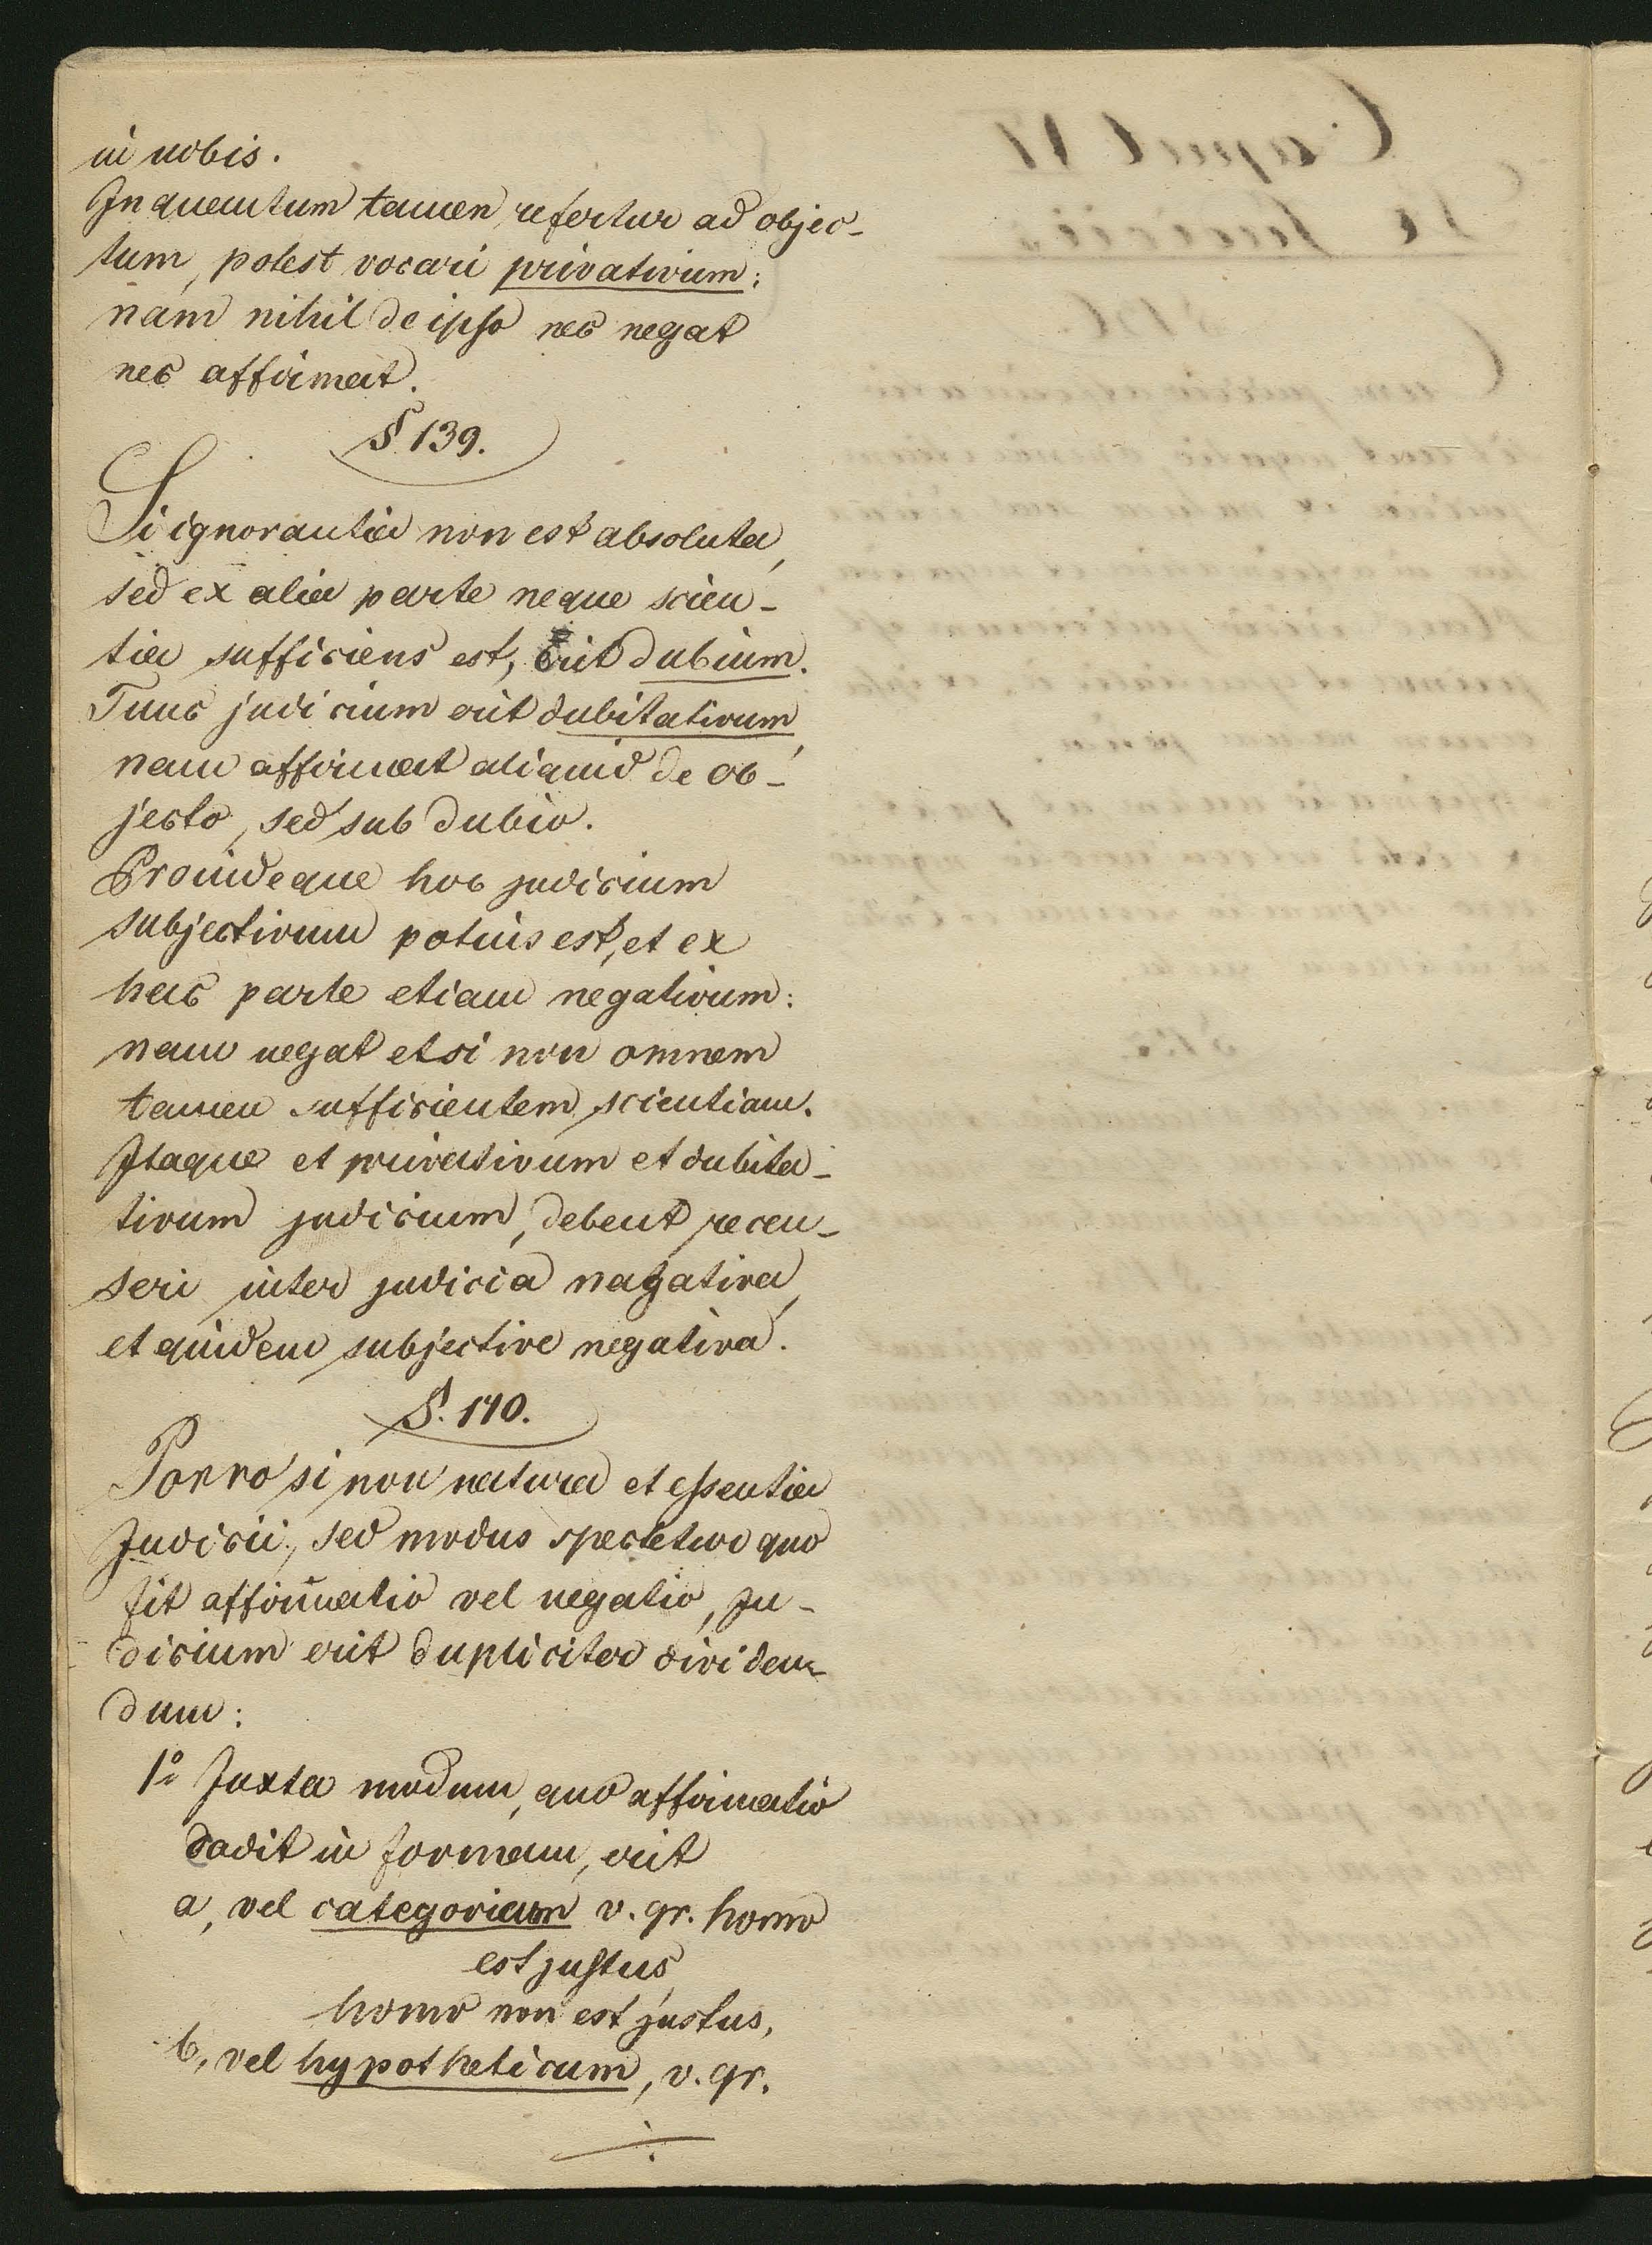 in nobis.
In quantum tamen refertur ad objec-
tum, potest vocari privativum;
nam nihil de ipso nec negat
nec affirmat.
§ 139.
Si ignorantia non est absoluta,
sed ex alia parte neque scien-
tia sufficiens est, erit dubium.
Tunc judicium erit dubitativum,
nam affirmat aliquid de ob-
jecto, sed sub dubio.
Proindeque hoc judicium
subjectivum potius est, et ex
hac parte etiam negativum:
nam negat etsi non omnem
tamen sufficientem scientiam.
Itaque et privativum et dubita-
tivum judicium, debent recen-
seri inter judicia nagativa,
et quidem subjective negativa.
§. 140.
Porro si non natura et essentia
Judicii, sed modus spectetur quo
fit affirmatio vel negatio, Ju-
dicium erit dupliciter dividen-
dum:
1º Juxta modum, quo affirmatio
cadit in formam, erit
a, vel categoricum v. gr. homo
est justus,
homo non est justus,
b, vel hypotheticum, v. gr.